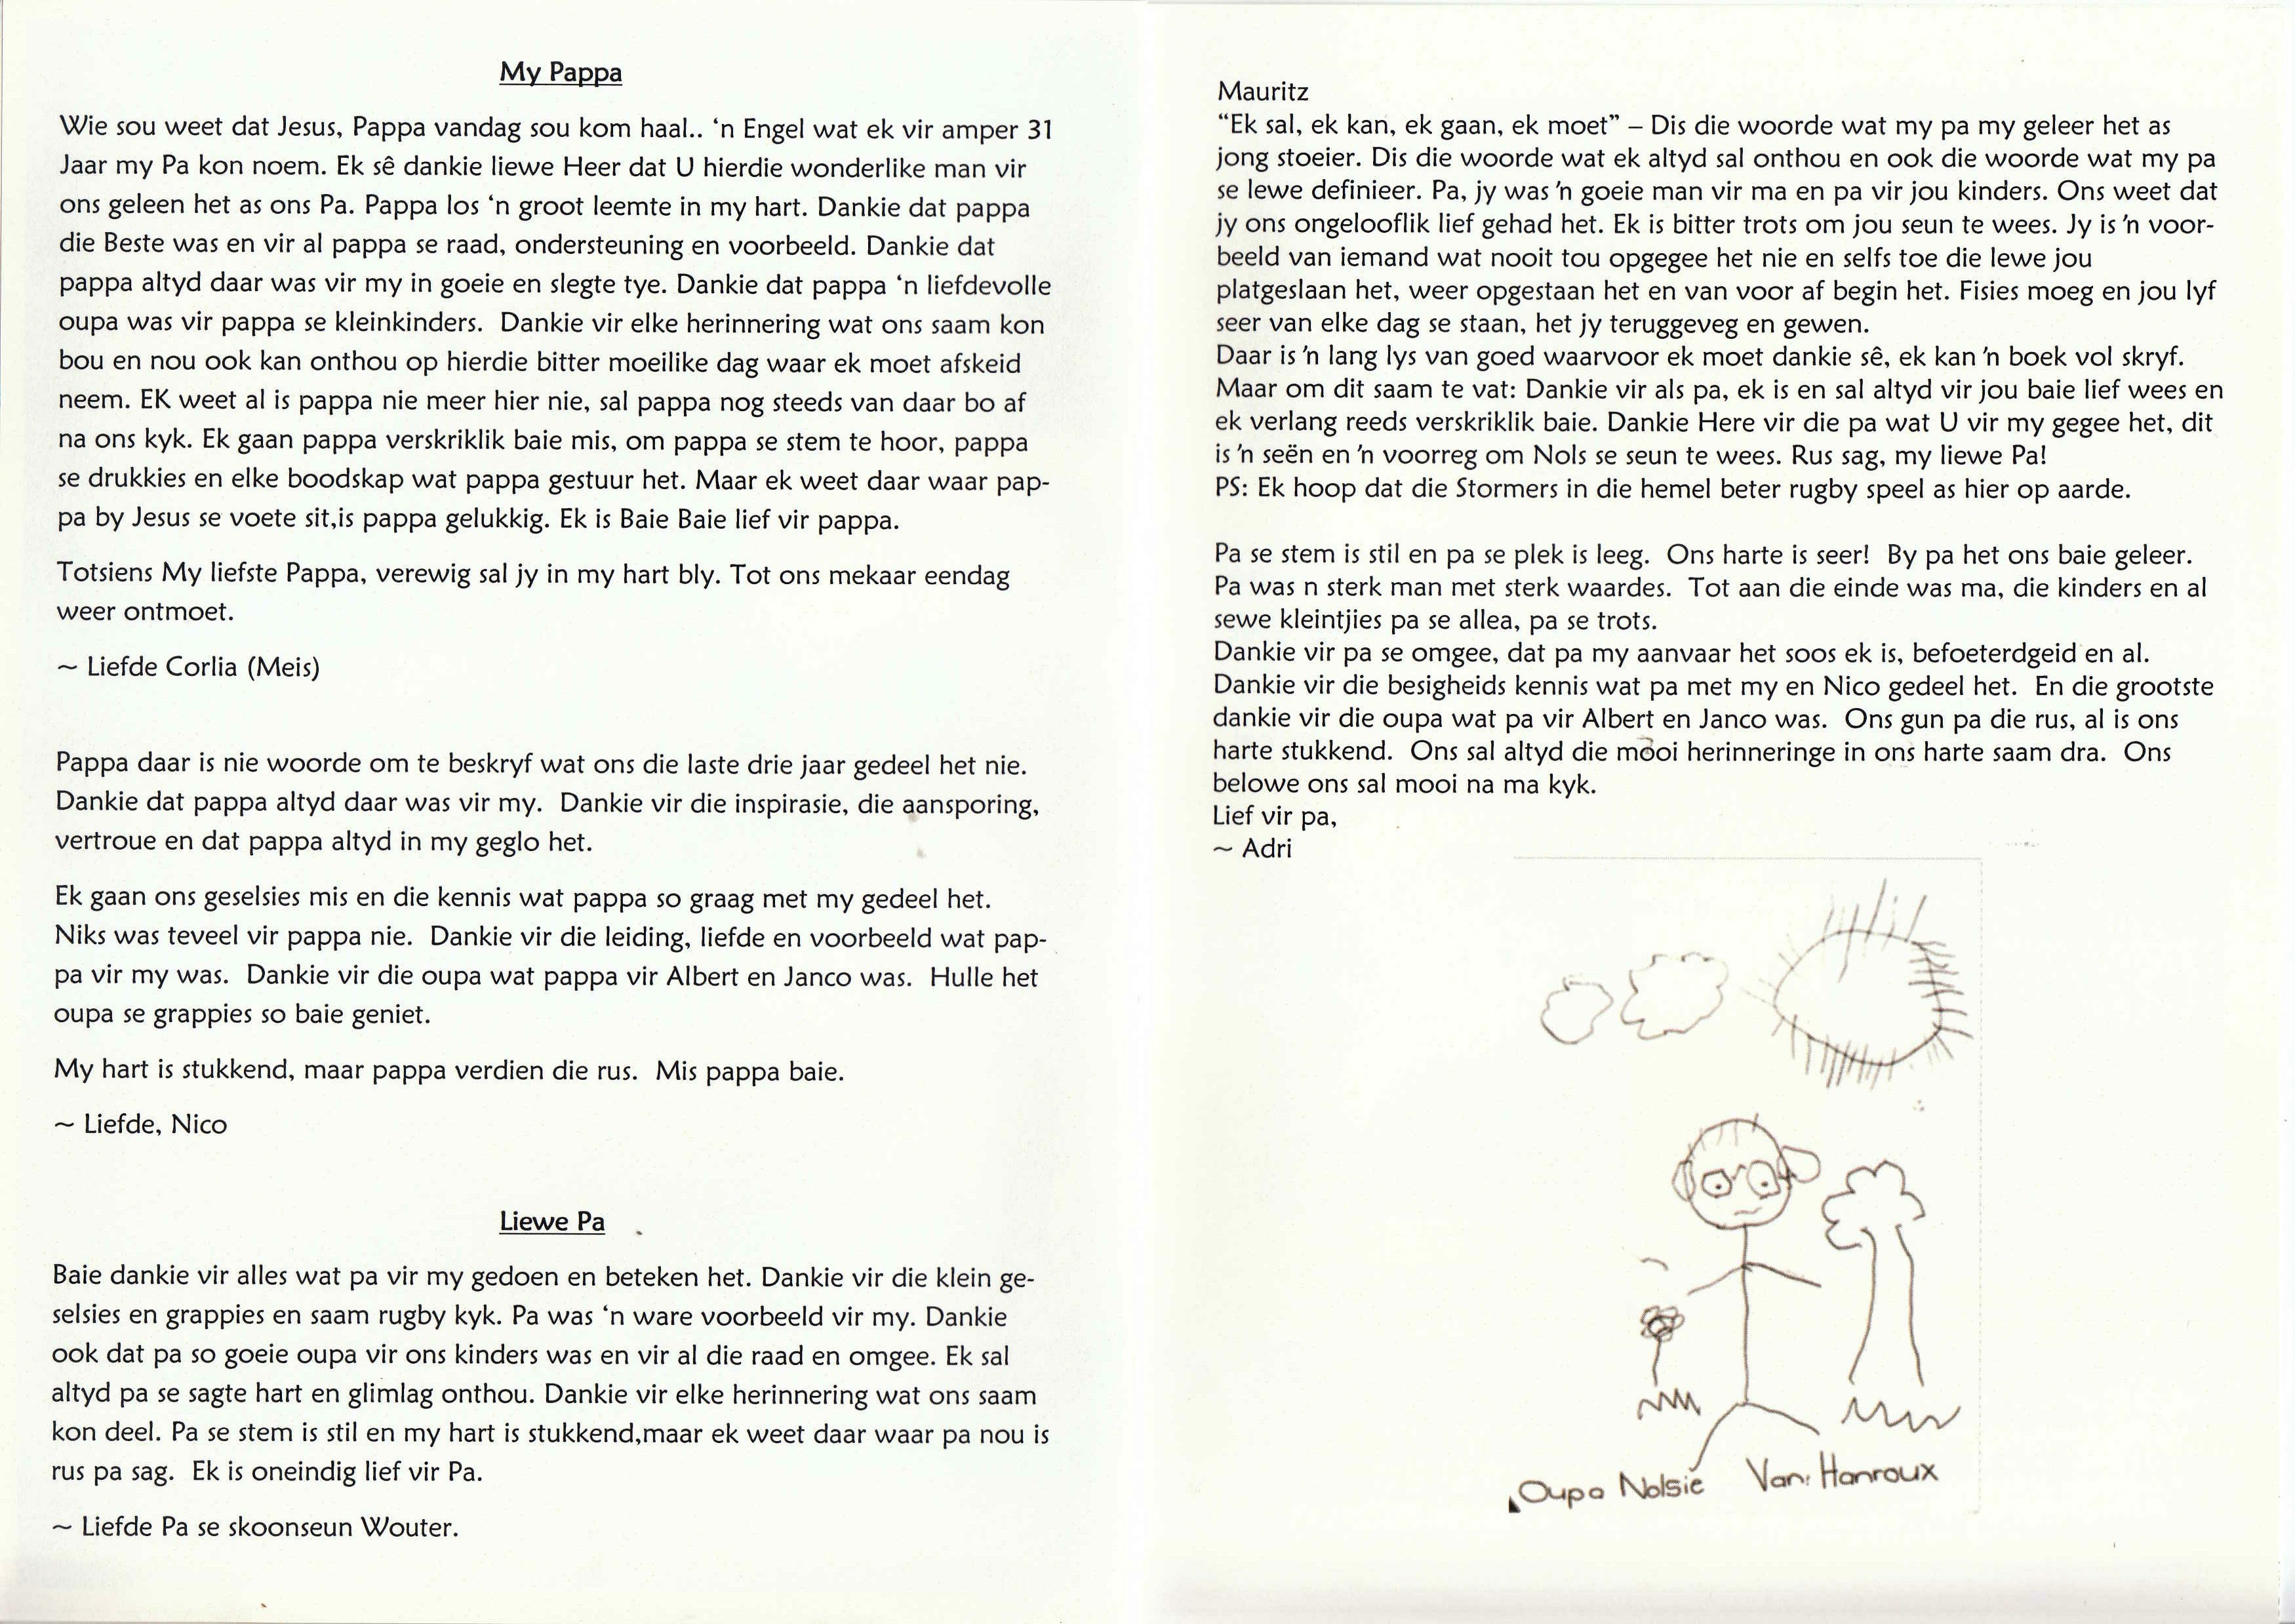 My Pappa
Wie sou weet dat Jesus, Pappa vandag sou kom haal.. ‘n Engel wat ek vir amper 31
Jaar my Pa kon noem. Ek sê dankie liewe Heer dat U hierdie wonderlike man vir
ons geleen het as ons Pa. Pappa los ‘n groot leemte in my hart. Dankie dat pappa
die Beste was en vir al pappa se raad, ondersteuning en voorbeeld. Dankie dat
pappa altyd daar was vir my in goeie en slegte tye. Dankie dat pappa ‘n liefdevolle
oupa was vir pappa se kleinkinders.  Dankie vir elke herinnering wat ons saam kon
bou en nou ook kan onthou op hierdie bitter moeilike dag waar ek moet afskeid
neem. EK weet al is pappa nie meer hier nie, sal pappa nog steeds van daar bo af
na ons kyk. Ek gaan pappa verskriklik baie mis, om pappa se stem te hoor, pappa
se drukkies en elke boodskap wat pappa gestuur het. Maar ek weet daar waar pap-
pa by Jesus se voete sit,is pappa gelukkig. Ek is Baie Baie lief vir pappa.
Totsiens My liefste Pappa, verewig sal jy in my hart bly. Tot ons mekaar eendag
weer ontmoet.
~ Liefde Corlia (Meis)
Pappa daar is nie woorde om te beskryf wat ons die laste drie jaar gedeel het nie.
Dankie dat pappa altyd daar was vir my.  Dankie vir die inspirasie, die aansporing,
vertroue en dat pappa altyd in my geglo het.
Ek gaan ons geselsies mis en die kennis wat pappa so graag met my gedeel het.
Niks was teveel vir pappa nie.  Dankie vir die leiding, liefde en voorbeeld wat pap-
pa vir my was.  Dankie vir die oupa wat pappa vir Albert en Janco was.  Hulle het
oupa se grappies so baie geniet.
My hart is stukkend, maar pappa verdien die rus.  Mis pappa baie.
~ Liefde, Nico
Liewe Pa
Baie dankie vir alles wat pa vir my gedoen en beteken het. Dankie vir die klein ge-
selsies en grappies en saam rugby kyk. Pa was ‘n ware voorbeeld vir my. Dankie
ook dat pa so goeie oupa vir ons kinders was en vir al die raad en omgee. Ek sal
altyd pa se sagte hart en glimlag onthou. Dankie vir elke herinnering wat ons saam
kon deel. Pa se stem is stil en my hart is stukkend,maar ek weet daar waar pa nou is
rus pa sag.  Ek is oneindig lief vir Pa.
~ Liefde Pa se skoonseun Wouter.
Mauritz
“Ek sal, ek kan, ek gaan, ek moet” – Dis die woorde wat my pa my geleer het as
jong stoeier. Dis die woorde wat ek altyd sal onthou en ook die woorde wat my pa
se lewe definieer. Pa, jy was ’n goeie man vir ma en pa vir jou kinders. Ons weet dat
jy ons ongelooflik lief gehad het. Ek is bitter trots om jou seun te wees. Jy is ’n voor-
beeld van iemand wat nooit tou opgegee het nie en selfs toe die lewe jou
platgeslaan het, weer opgestaan het en van voor af begin het. Fisies moeg en jou lyf
seer van elke dag se staan, het jy teruggeveg en gewen.
Daar is ’n lang lys van goed waarvoor ek moet dankie sê, ek kan ’n boek vol skryf.
Maar om dit saam te vat: Dankie vir als pa, ek is en sal altyd vir jou baie lief wees en
ek verlang reeds verskriklik baie. Dankie Here vir die pa wat U vir my gegee het, dit
is ’n seën en ’n voorreg om Nols se seun te wees. Rus sag, my liewe Pa!
PS: Ek hoop dat die Stormers in die hemel beter rugby speel as hier op aarde.
Pa se stem is stil en pa se plek is leeg.  Ons harte is seer!  By pa het ons baie geleer.
Pa was n sterk man met sterk waardes.  Tot aan die einde was ma, die kinders en al
sewe kleintjies pa se allea, pa se trots.
Dankie vir pa se omgee, dat pa my aanvaar het soos ek is, befoeterdgeid en al.
Dankie vir die besigheids kennis wat pa met my en Nico gedeel het.  En die grootste
dankie vir die oupa wat pa vir Albert en Janco was.  Ons gun pa die rus, al is ons
harte stukkend.  Ons sal altyd die mooi herinneringe in ons harte saam dra.  Ons
belowe ons sal mooi na ma kyk.
Lief vir pa,
~ Adri
Oupa Nolsie Van: Hanroux